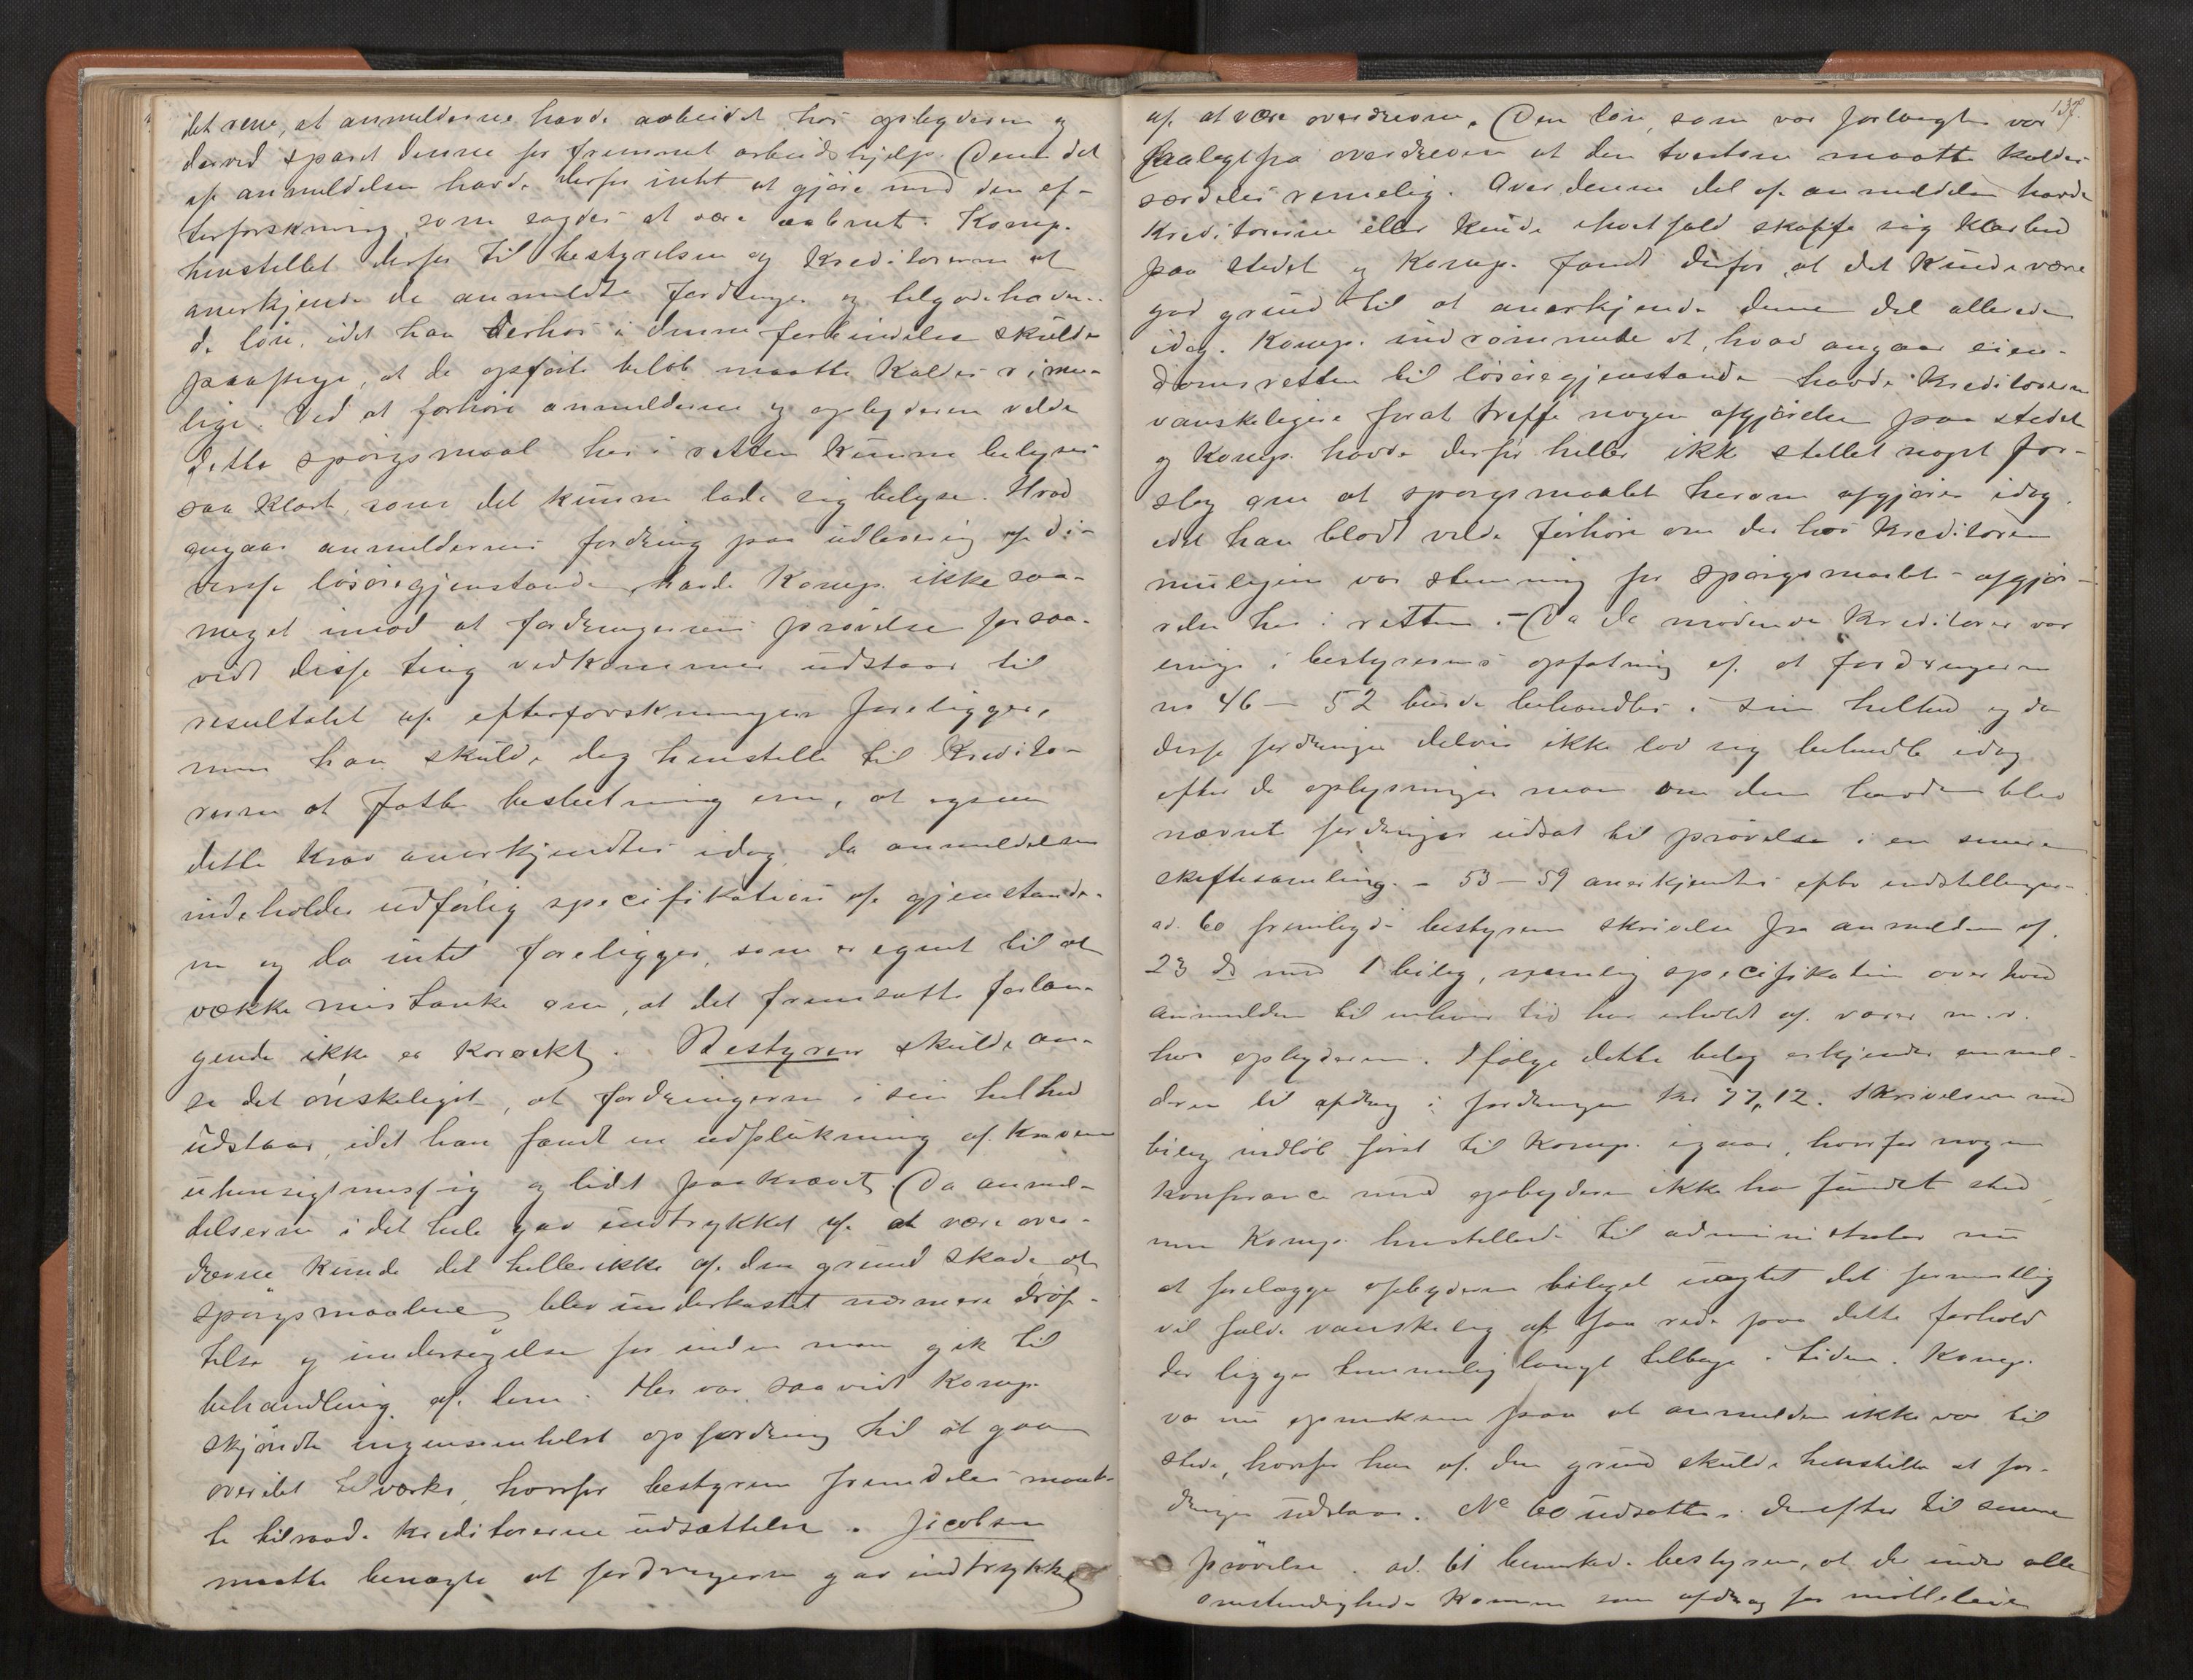 det rene, at anmelderne havde arbeidet hos opbyderen og
derved sparet denne for fremmet arbeidshjelp. Denne del
af anmeldelsen havde derfor intet at gjøre med den ef-
terforskning, som sagdes at være aabnet. Komp.
henstillet derfor til bestyrelsen og kreditorerne at
anerkjende de anmeldte fordringer og tilgodehaven-
de løn, idet han derhos i denne forbindelse skulde
paapege, at de opførte beløb maatte kaldes rime-
lige. Ved at forhøre anmelderne og opbyderen vilde
dette spørgsmaal her i retten kunne belyses
saa klart, som det kunne lade sig belyse. Hvad
angaar anmeldernes fordring paa udlevering af di-
verse løsøregjenstande, havde Komp. ikke saa-
meget imod at fordringernes prøvelse forsaa-
vidt disse ting vedkommer udstaar til
resultatet af efterforskningen foreligger,
men han skulde dog henstille til kredito-
rerne at fatte beslutning om, at ogsaa
dette krav anerkjendtes idag, da anmeldelsen
indeholder udførlig specifikation af gjenstande-
ne og da intet foreligger, som er egnet til at
vække mistanke om, at det fremsatte forlan-
gende ikke er korrekt. Bestyren skulde an-
se det ønskeligst, at fordringerne i sin helhed
udstaar, idet han fandt en udplukning af kravene
uhensigtmessig og lidt paakrævet. Da anmel-
delserne i det hele gav indtrykket af at være over-
drevne kunde det heller ikke af den grund skade, at
spørgsmaalene blev underkastet nærmere drøf-
telse og undersøgelse før inden man gik til
behandling af dem. Her var saavidt Komp.
skjøndte ingensomhelst opfordring til at gaa
overilet tilverks, hvorfor bestyren fremdeles maat-
te tilraade kreditorerne udsættelse. Jacobsen
maatte benægte at fordringerne gav indtrykket
137.
af at være overdrevne. Den løn, som var forlangt var
saalangtfra overdreven at den tvertom maatte kaldes
særdeles rimelig. Over denne del af anmeldelsen havde
kreditorerne eller kunde ihvertfald skaffe sig klarhed
paa stedet og Komp. fandt derfor, at det kunde være
god grund til at anerkjende denne del allerede
idag. Komp. indrømmede at, hvad angaar eien-
domsretten til løsøregjenstande havde kreditorerne
vanskeligere forat treffe nogen afgjørelse paa stedet
og Komp. havde derfor heller ikke stillet noget for-
slag om at spørgsmaalet herom afgjøres idag.
idet han blodt vilde forhøre om der hos kreditorer
muligens var stemning for spørgsmaalets afgjør-
relse her i retten. – Da de mødende kreditorer var
enige i bestyrerens opfatning af at fordringerne
no 46 – 52 burde behandles i sin helhed og da
disse fordringer delvis ikke lod sig behandle idag
efter de oplysninger man om dem havde blev
nævnte fordringer udsat til prøvelse i en senere
skiftesamling. – 53 – 59 anerkjendtes efter indstillingen.
ad. 60 fremlagde bestyren skrivelse fra anmelderen af.
23 ds med 1 bilag, nemlig specifikation over hvad
anmelderen til enhver tid har erholdt af varer m.v.
hos opbyderen. Ifølge dette bilag erkjender anmel-
deren til afdrag i fordringen kr 77,12. Skrivelsen med
bilag indløb først til Komp. igaar, hvorfor nogen
konferance med opbyderen ikke har fundet sted,
men Komp. henstillede til administrator nu
at forelægge opbyderen bilaget uagtet det formentlig
vil falde vanskelig at faa rede paa dette forhold
der ligger temmelig langt tilbage i tiden. Komp.
var nu opmerksom paa at anmelderen ikke var til
stede, hvorfor han af den grund skulde henstille at for-
dringen udstaar. No 60 udsattes derefter til senere
prøvelse. ad. 61 bemerkede bestyren, at der under alle
omstendigheder komme som afdrag for mølleleien